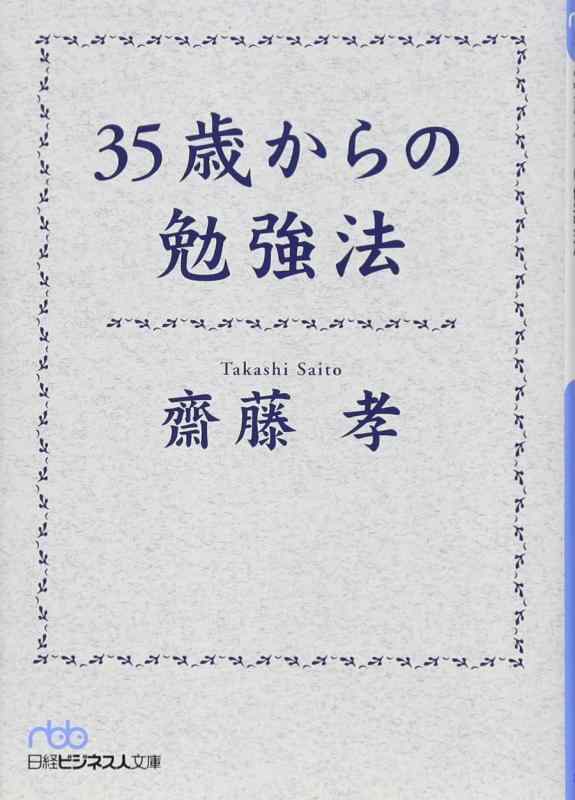 35歳からの
勉強法
Takashi Saito
齋藤 孝
nbb
日経ビジネス人文庫